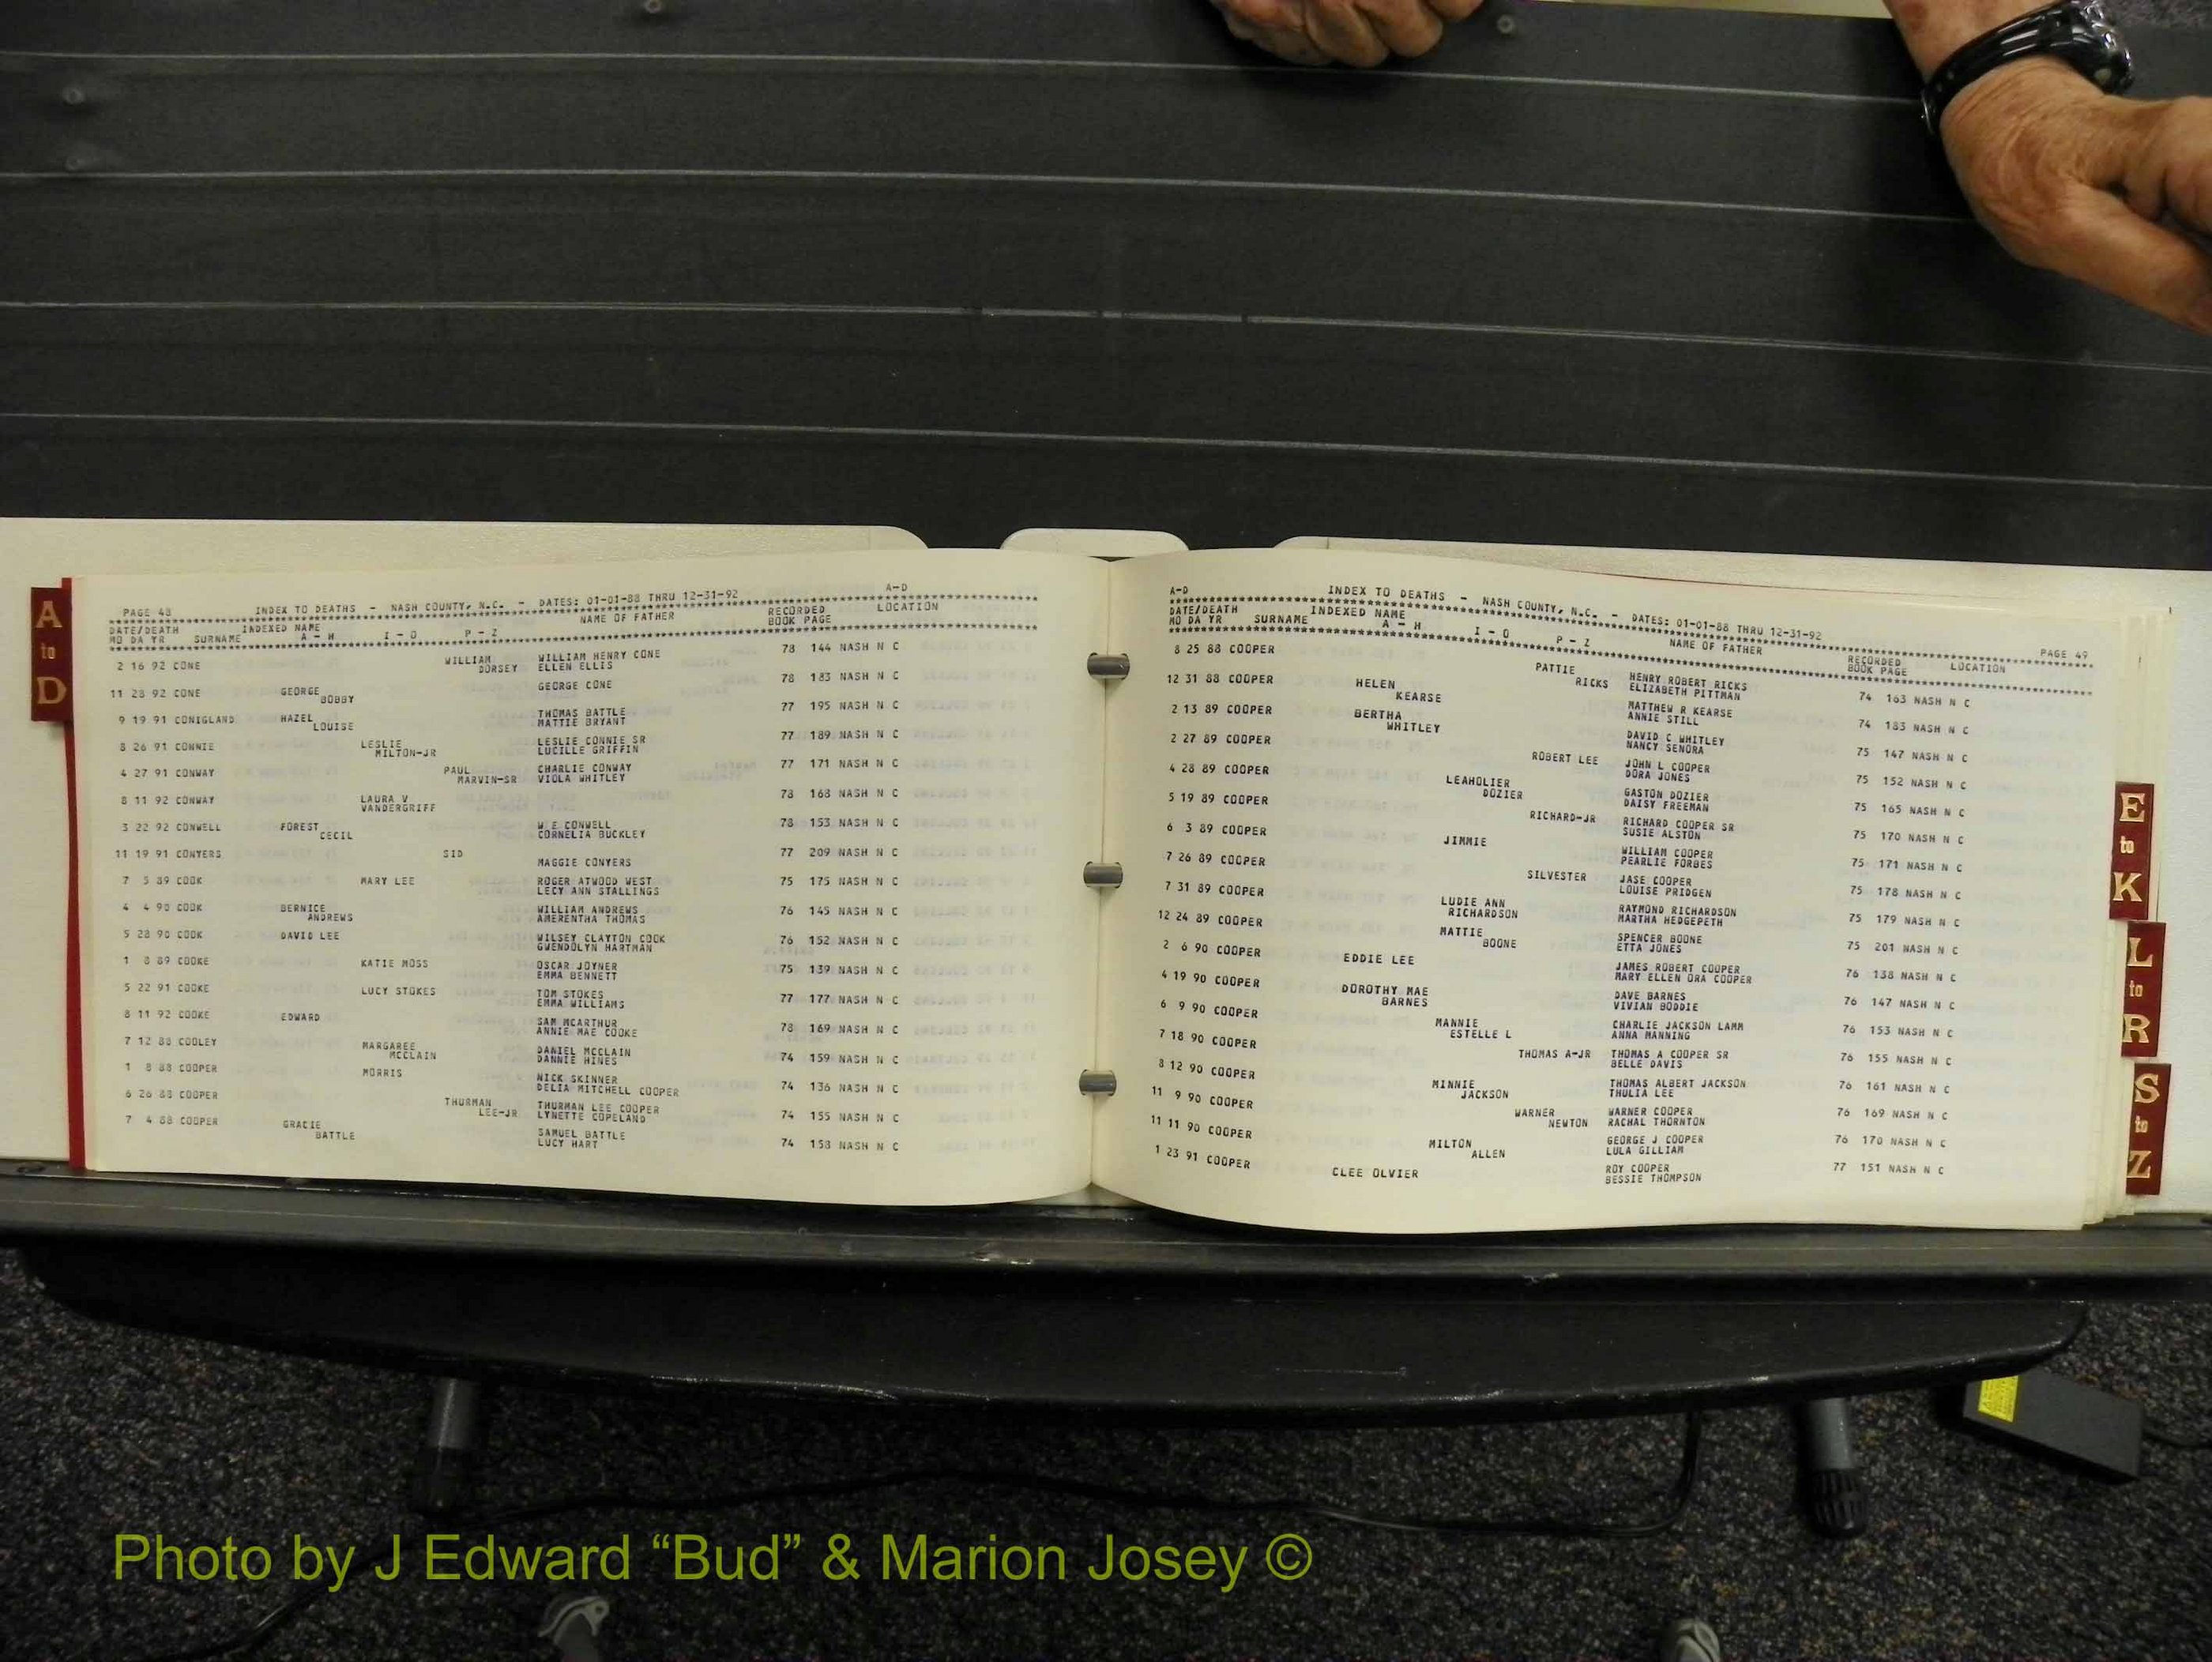 A
to
D
PAGE 48 INDEX TO DEATHS - NASH COUNTY, N.C. - DATES: 01-01-88 THRU 12-31-92 A-D
DATE/DEATH INDEXED NAME NAME OF FATHER RECORDED LOCATION
MO DA YR SURNAME A - H I - O P - Z BOOK PAGE
2 16 92 CONE WILLIAM WILLIAM HENRY CONE 78 144 NASH N C
DORSEY ELLEN ELLIS
11 28 92 CONE GEORGE GEORGE CONE 78 183 NASH N C
BOBBY
9 19 91 CONIGLAND HAZEL THOMAS BATTLE 77 195 NASH N C
LOUISE MATTIE BRYANT
8 26 91 CONNIE LESLIE LESLIE CONNIE SR 77 189 NASH N C
MILTON-JR LUCILLE GRIFFIN
4 27 91 CONWAY PAUL CHARLIE CONWAY 77 171 NASH N C
MARVIN-SR VIOLA WHITLEY
8 11 92 CONWAY LAURA V 78 168 NASH N C
VANDERGRIFF
3 22 92 CONWELL FOREST W E CONWELL 78 153 NASH N C
CECIL CORNELIA BUCKLEY
11 19 91 CONYERS SID 77 209 NASH N C
MAGGIE CONYERS
7 5 89 COOK MARY LEE ROGER ATWOOD WEST 75 175 NASH N C
LECY ANN STALLINGS
4 4 90 COOK BERNICE WILLIAM ANDREWS 76 145 NASH N C
ANDREWS AMERENTHA THOMAS
5 28 90 COOK DAVID LEE WILSEY CLAYTON COOK 76 152 NASH N C
GWENDOLYN HARTMAN
1 8 89 COOKE KATIE MOSS OSCAR JOYNER 75 139 NASH N C
EMMA BENNETT
5 22 91 COOKE LUCY STOKES TOM STOKES 77 177 NASH N C
EMMA WILLIAMS
8 11 92 COOKE EDWARD SAM MCARTHUR 78 169 NASH N C
ANNIE MAE COOKE
7 12 88 COOLEY MARGAREE DANIEL MCCLAIN 74 159 NASH N C
MCCLAIN DANNIE HINES
1 8 88 COOPER MORRIS NICK SKINNER 74 136 NASH N C
DELIA MITCHELL COOPER
6 26 88 COOPER THURMAN THURMAN LEE COOPER 74 155 NASH N C
LEE-JR LYNETTE COPELAND
7 4 88 COOPER GRACIE SAMUEL BATTLE 74 158 NASH N C
BATTLE LUCY HART
A-D INDEX TO DEATHS - NASH COUNTY, N.C. - DATES: 01-01-88 THRU 12-31-92 PAGE 49
DATE/DEATH INDEXED NAME NAME OF FATHER RECORDED LOCATION
MO DA YR SURNAME A - H I - O P - Z BOOK PAGE
8 25 88 COOPER PATTIE HENRY ROBERT RICKS 74 163 NASH N C
RICKS ELIZABETH PITTMAN
12 31 88 COOPER HELEN MATTHEW R KEARSE 74 183 NASH N C
KEARSE ANNIE STILL
2 13 89 COOPER BERTHA DAVID C WHITLEY 75 147 NASH N C
WHITLEY NANCY SENORA
2 27 89 COOPER ROBERT LEE JOHN L COOPER 75 152 NASH N C
DORA JONES
4 28 89 COOPER LEAHOLIER GASTON DOZIER 75 165 NASH N C
DOZIER DAISY FREEMAN
5 19 89 COOPER RICHARD-JR RICHARD COOPER SR 75 170 NASH N C
SUSIE ALSTON
6 3 89 COOPER JIMMIE WILLIAM COOPER 75 171 NASH N C
PEARLIE FORBES
7 26 89 COOPER SILVESTER JASE COOPER 75 178 NASH N C
LOUISE PRIDGEN
7 31 89 COOPER LUDIE ANN RAYMOND RICHARDSON 75 179 NASH N C
RICHARDSON MARTHA HEDGEPETH
12 24 89 COOPER MATTIE SPENCER BOONE 75 201 NASH N C
BOONE ETTA JONES
2 6 90 COOPER EDDIE LEE JAMES ROBERT COOPER 76 138 NASH N C
MARY ELLEN ORA COOPER
4 19 90 COOPER DOROTHY MAE DAVE BARNES 76 147 NASH N C
BARNES VIVIAN BODDIE
6 9 90 COOPER MANNIE CHARLIE JACKSON LAMM 76 153 NASH N C
ESTELLE L ANNA MANNING
7 18 90 COOPER THOMAS A-JR THOMAS A COOPER SR 76 155 NASH N C
BELLE DAVIS
8 12 90 COOPER MINNIE THOMAS ALBERT JACKSON 76 161 NASH N C
JACKSON THULIA LEE
11 9 90 COOPER WARNER WARNER COOPER 76 169 NASH N C
NEWTON RACHAL THORNTON
11 11 90 COOPER MILTON GEORGE J COOPER 76 170 NASH N C
ALLEN LULA GILLIAM
1 23 91 COOPER CLEE OLVIER ROY COOPER 77 151 NASH N C
BESSIE THOMPSON
E
to
K
L
to
R
S
to
Z
Photo by J Edward “Bud” & Marion Josey ©